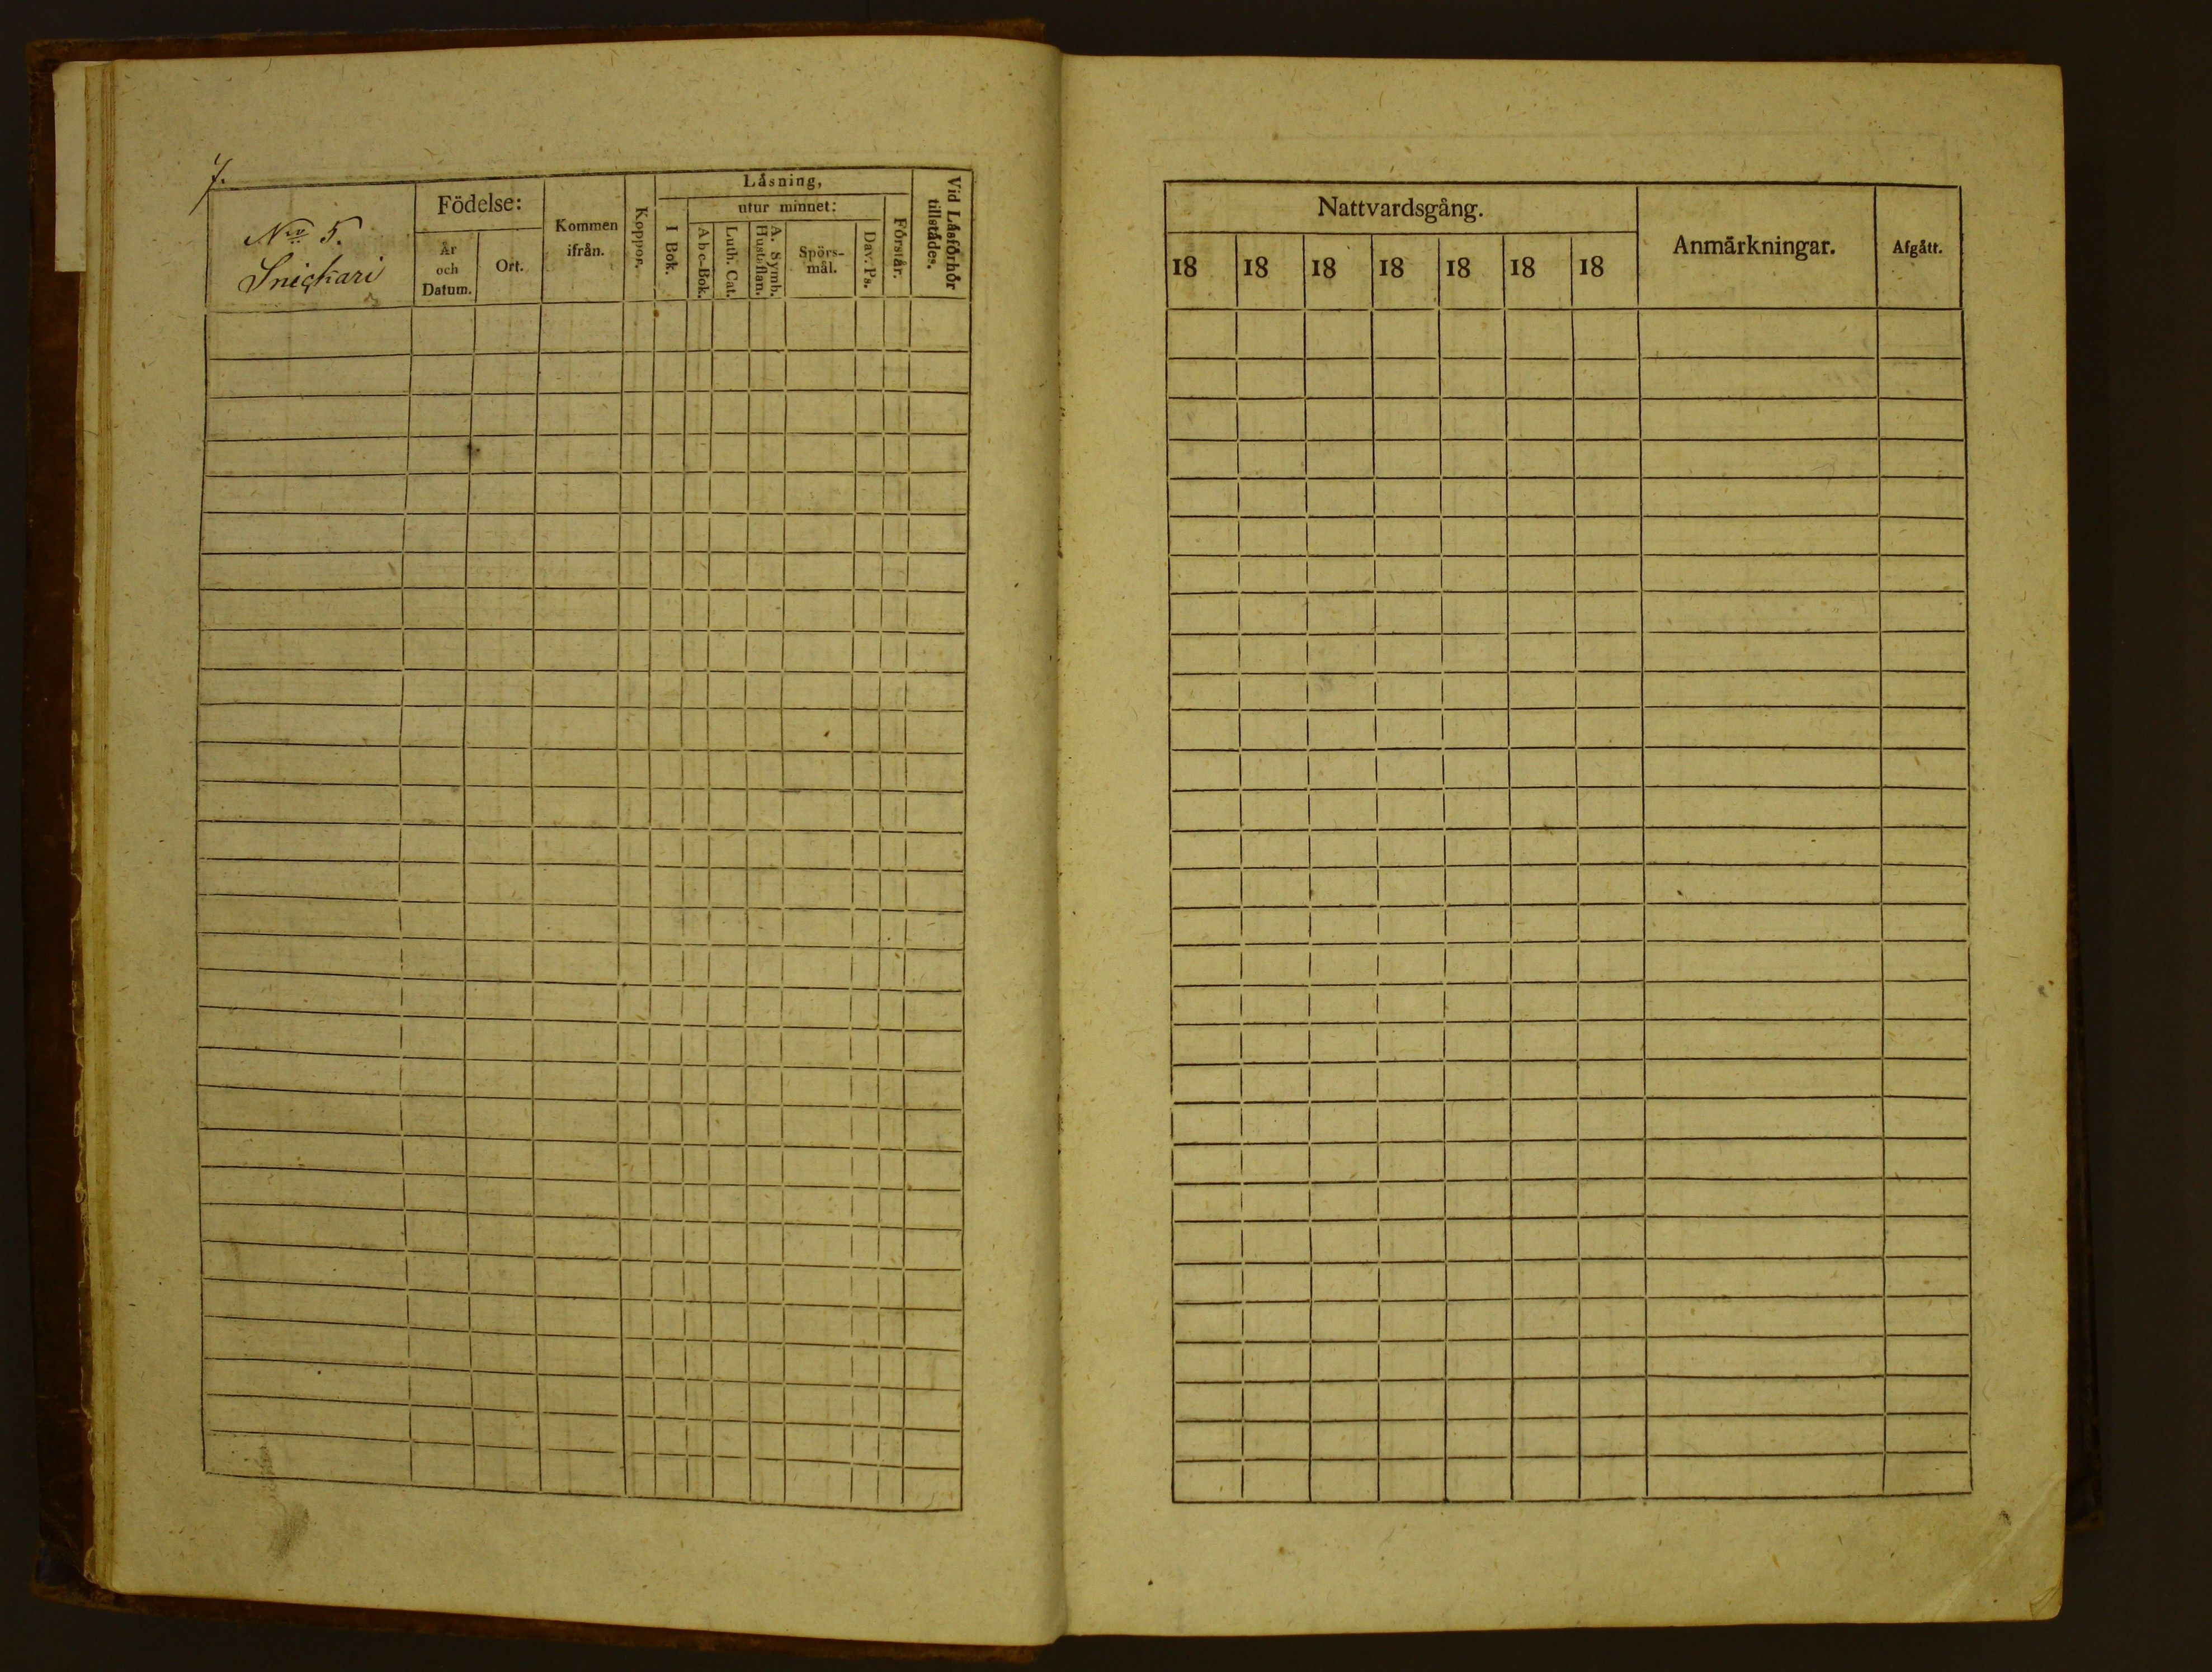 7.
Nro 5.
Snickari
Födelse:
År
och
Datum.
Ort.
Kommen
ifrån.
Koppor.
Låsning,
I Bok.
utur minnet:
Abc-Bok.
Luth. Cat.
A. Symb.
Hustaflan.
Spörs-
mål.
Dav. Ps.
Förstår.
Vid Låsförhör
tillstådes.
Nattvardsgång.
18 18 18 18 18 18 18
Anmärkningar.
Afgått.